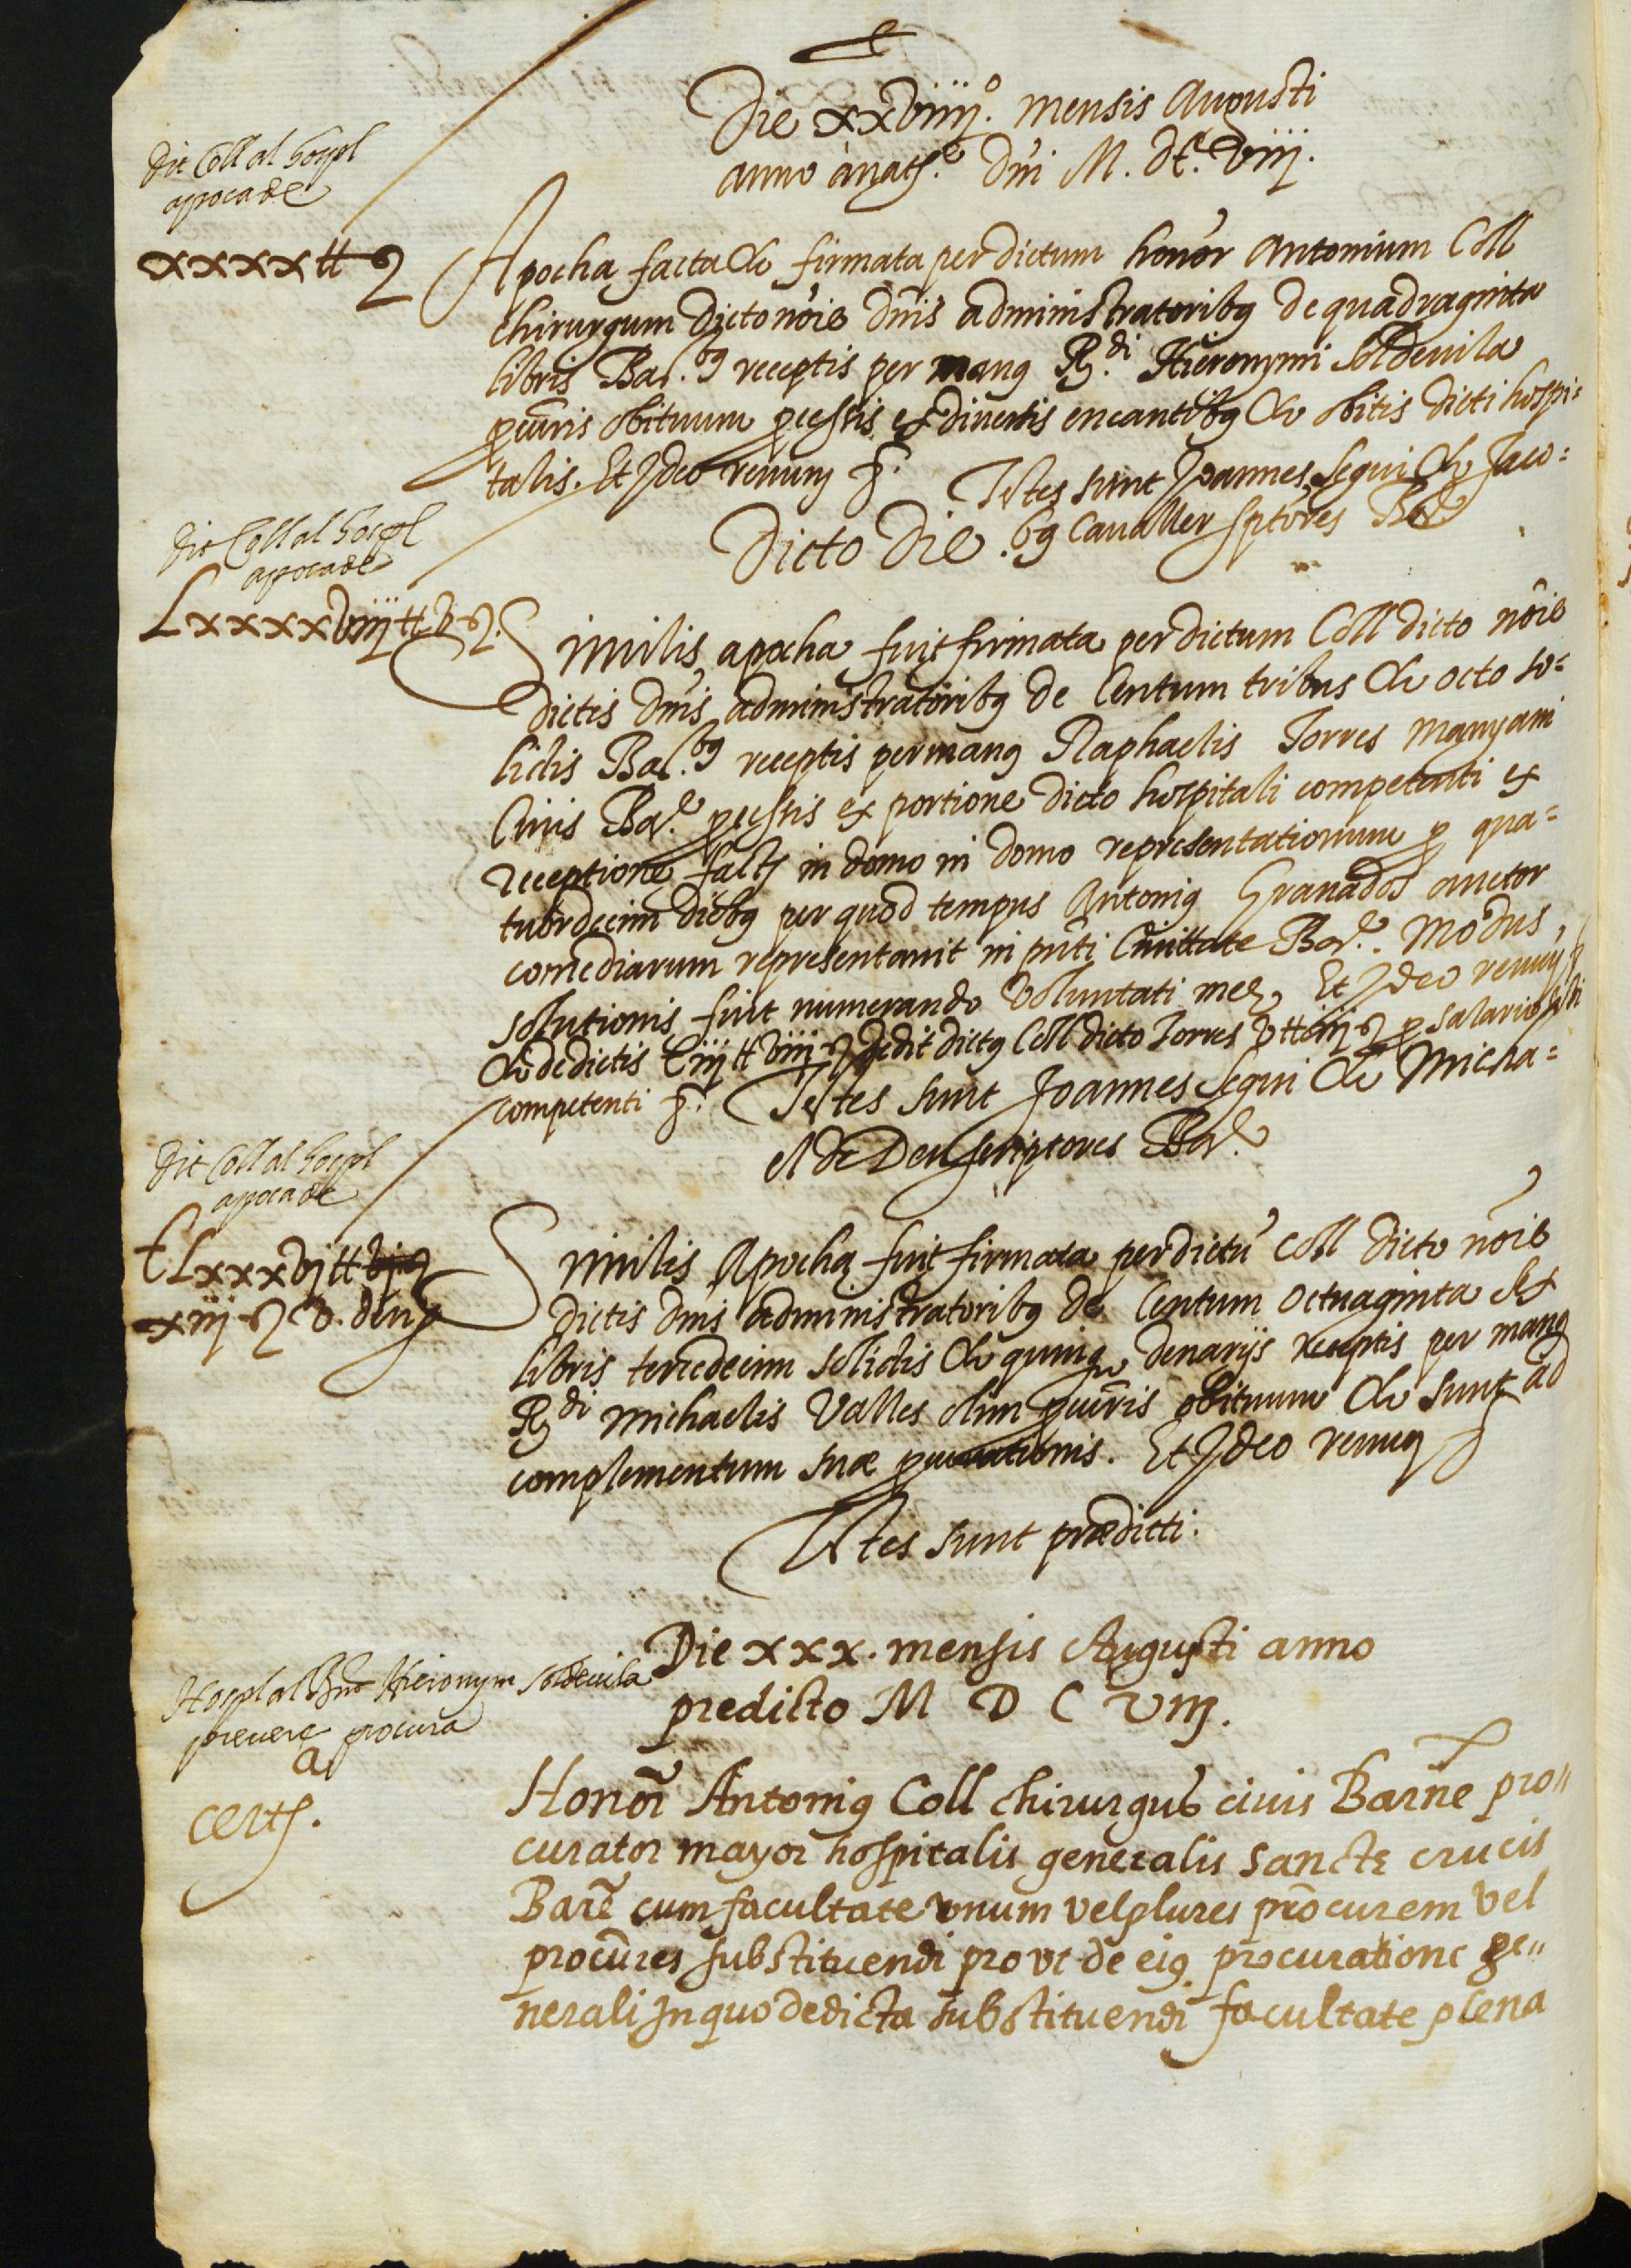 Die xxviiij.º mensis Augusti
anno a natᵉ. Dñi M. dC. viij.
dit Coll al hospl
apoca de
xxxx tt ꝯ
Apocha facta & firmata per dictum honor Antonium Coll
chirurgum dicto nõie dñis administratoribꝯ de quadraginta
libris Bar.bꝯ receptis per manꝯ R.di Hieronymi Soldevila
ꝓcũris obituum ꝓcessis ex diversis encantibꝯ & obitis dicti hospi=
talis. Et Ideo renunꝯ &. Testes sunt Joannes Segui & Jaco=
bꝯ Cavaller sptores Bar
Dicto Die.
dit Coll al hospl
apoca de
Lxxxxviij tt ꝯ.
Similis apocha fuit firmata per dictum Coll dicto nõie
dictis dñis administratoribꝯ de Centum tribus & octo so=
lidis Bar.bꝯ receptis per manꝯ Raphaelis Torres Manyani
Civis Bar. ꝓcessis ex portione dicto hospitali competenti ex
receptione factę in domo in domo representationum ꝑ qua=
tuordecim diebꝯ per quod tempus Antoniꝯ Granados auctor
comediarum representavit in pñti Civittate Bar. Modus
solutionis fuit numerando voluntati meę, Et Ideo renunꝯ
& de dictis Ciij tt viij ꝯ dedit dictꝯ Coll dicto Torres v tt iiij ꝯ ꝑ salario sibi
competenti &. Testes sunt Joannes Segui & Micha=
el de Deu scriptores Bar.
dit Coll al hospl
apoca de
CLxxxvj tt vj ꝯ
xiij ꝯ v. dinꝯ
Similis Apocha fuit firmata per dictũ Coll dicto nõie
dictis dñis administratoribꝯ de Centum Octuaginta sex
libris terdecim solidis & quinqꝫ denarijs receptis per manꝯ
R.di Michaelis Valles olim ꝓcũris obituum & sunt ad
complementum suæ ꝓcurationis. Et Ideo renunꝯ &
Testes sunt prædicti.
Die xxx. mensis Augusti anno
predicto M D C viij.
Hospl al Rnt Hieronym Soldevila
prevere procura
a
certꝭ.
Honor Antoniꝯ Coll chirurgus civis Barñe pro=
curator mayor hospitalis generalis Sanctę crucis
Barẽ cum facultate unum vel plures procurem vel
procũres substituendi prout de eiꝯ procuratione ge=
nerali in quo de dicta substituendi facultate plena